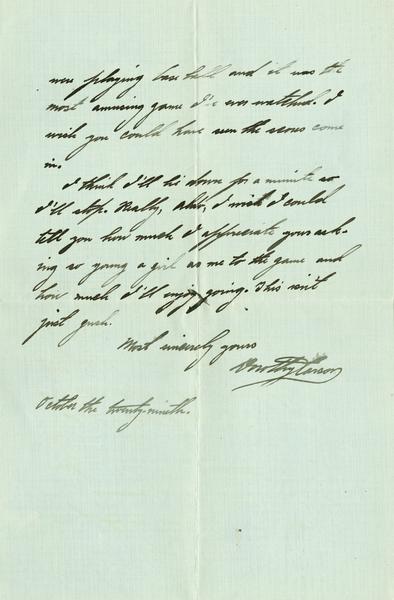 were playing base ball and it was the
most amusing game I've ever watched. I
wish you could have seen the scores come
in.
I think I'll lie down for a minute so
I'll stop. Really, I wish I could
tell you how much I appreciate your ask-
ing so young a girl as me to the game and
how much I'll enjoy going. This isn't
just gush.
Most sincerely yours
Dorothy Canson
October the twenty-ninth.